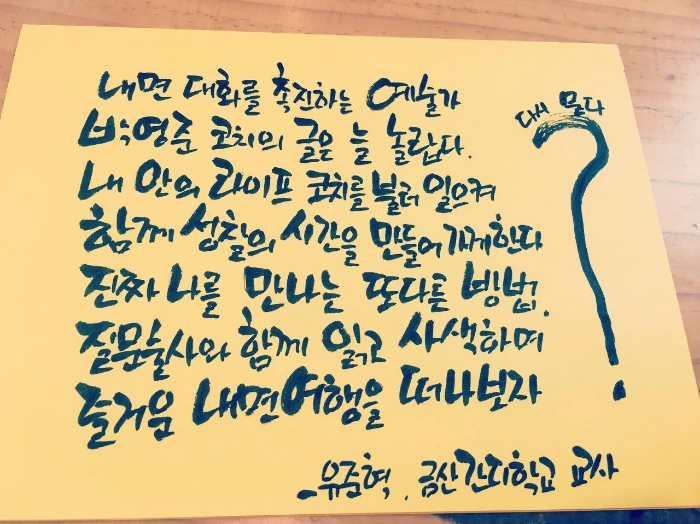 내면 대화를 촉진하는 예술가
박영준 코치의 글은 늘 놀랍다.
내 안의 라이프 코치를 불러 일으켜
함께 성찰의 시간을 만들어가게한다
진짜 나를 만나는 또다른 방법.
질문술사와 함께 읽고 사색하며
즐거운 내면여행을 떠나보자
다시 묻다
?
- 유준혁, 금산간디학교 교사